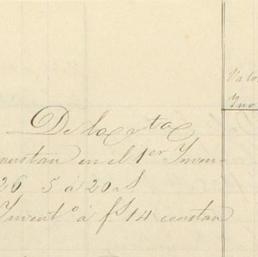 Valo
De la
constan en el 1er Inven-
26 5 á 20 al
Invent° á fs 14 constan